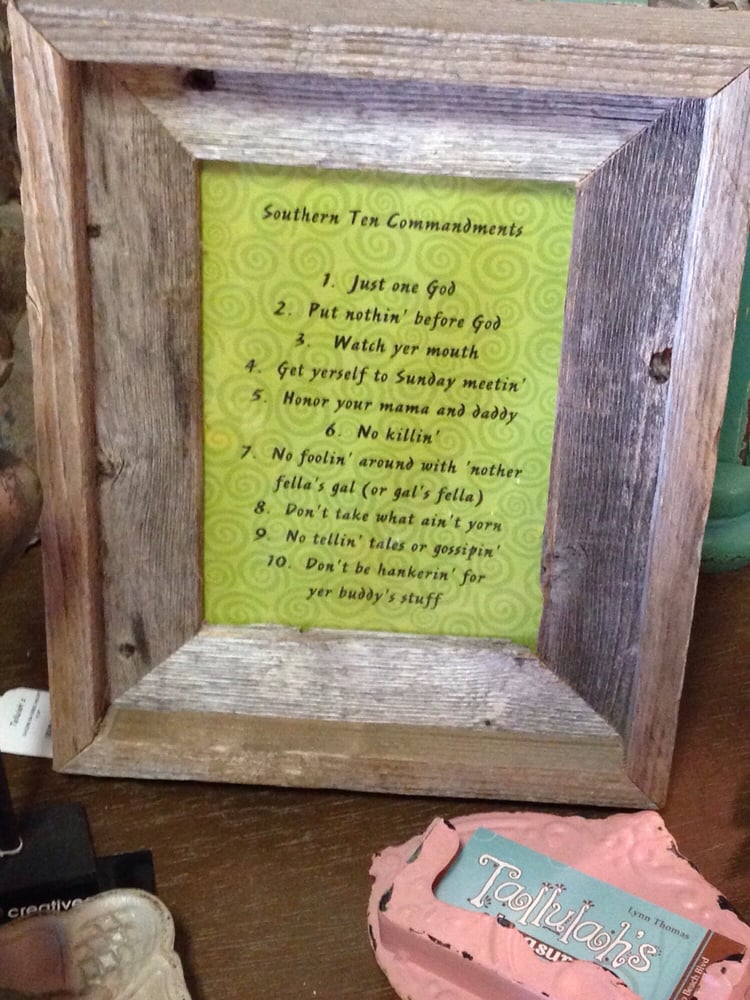 Southern Ten Commandments
1. Just one God
2. Put nothin' before God
3. Watch yer mouth
4. Get yerself to Sunday meetin'
5. Honor your mama and daddy
6. No killin'
7. No foolin' around with 'nother
fella's gal (or gal's fella)
8. Don't take what ain't yorn
9. No tellin' tales or gossipin'
10. Don't be hankerin' for
yer buddy's stuff
Tallulah's
creative
Tallulah's
Lynn Thomas
Beach Blvd